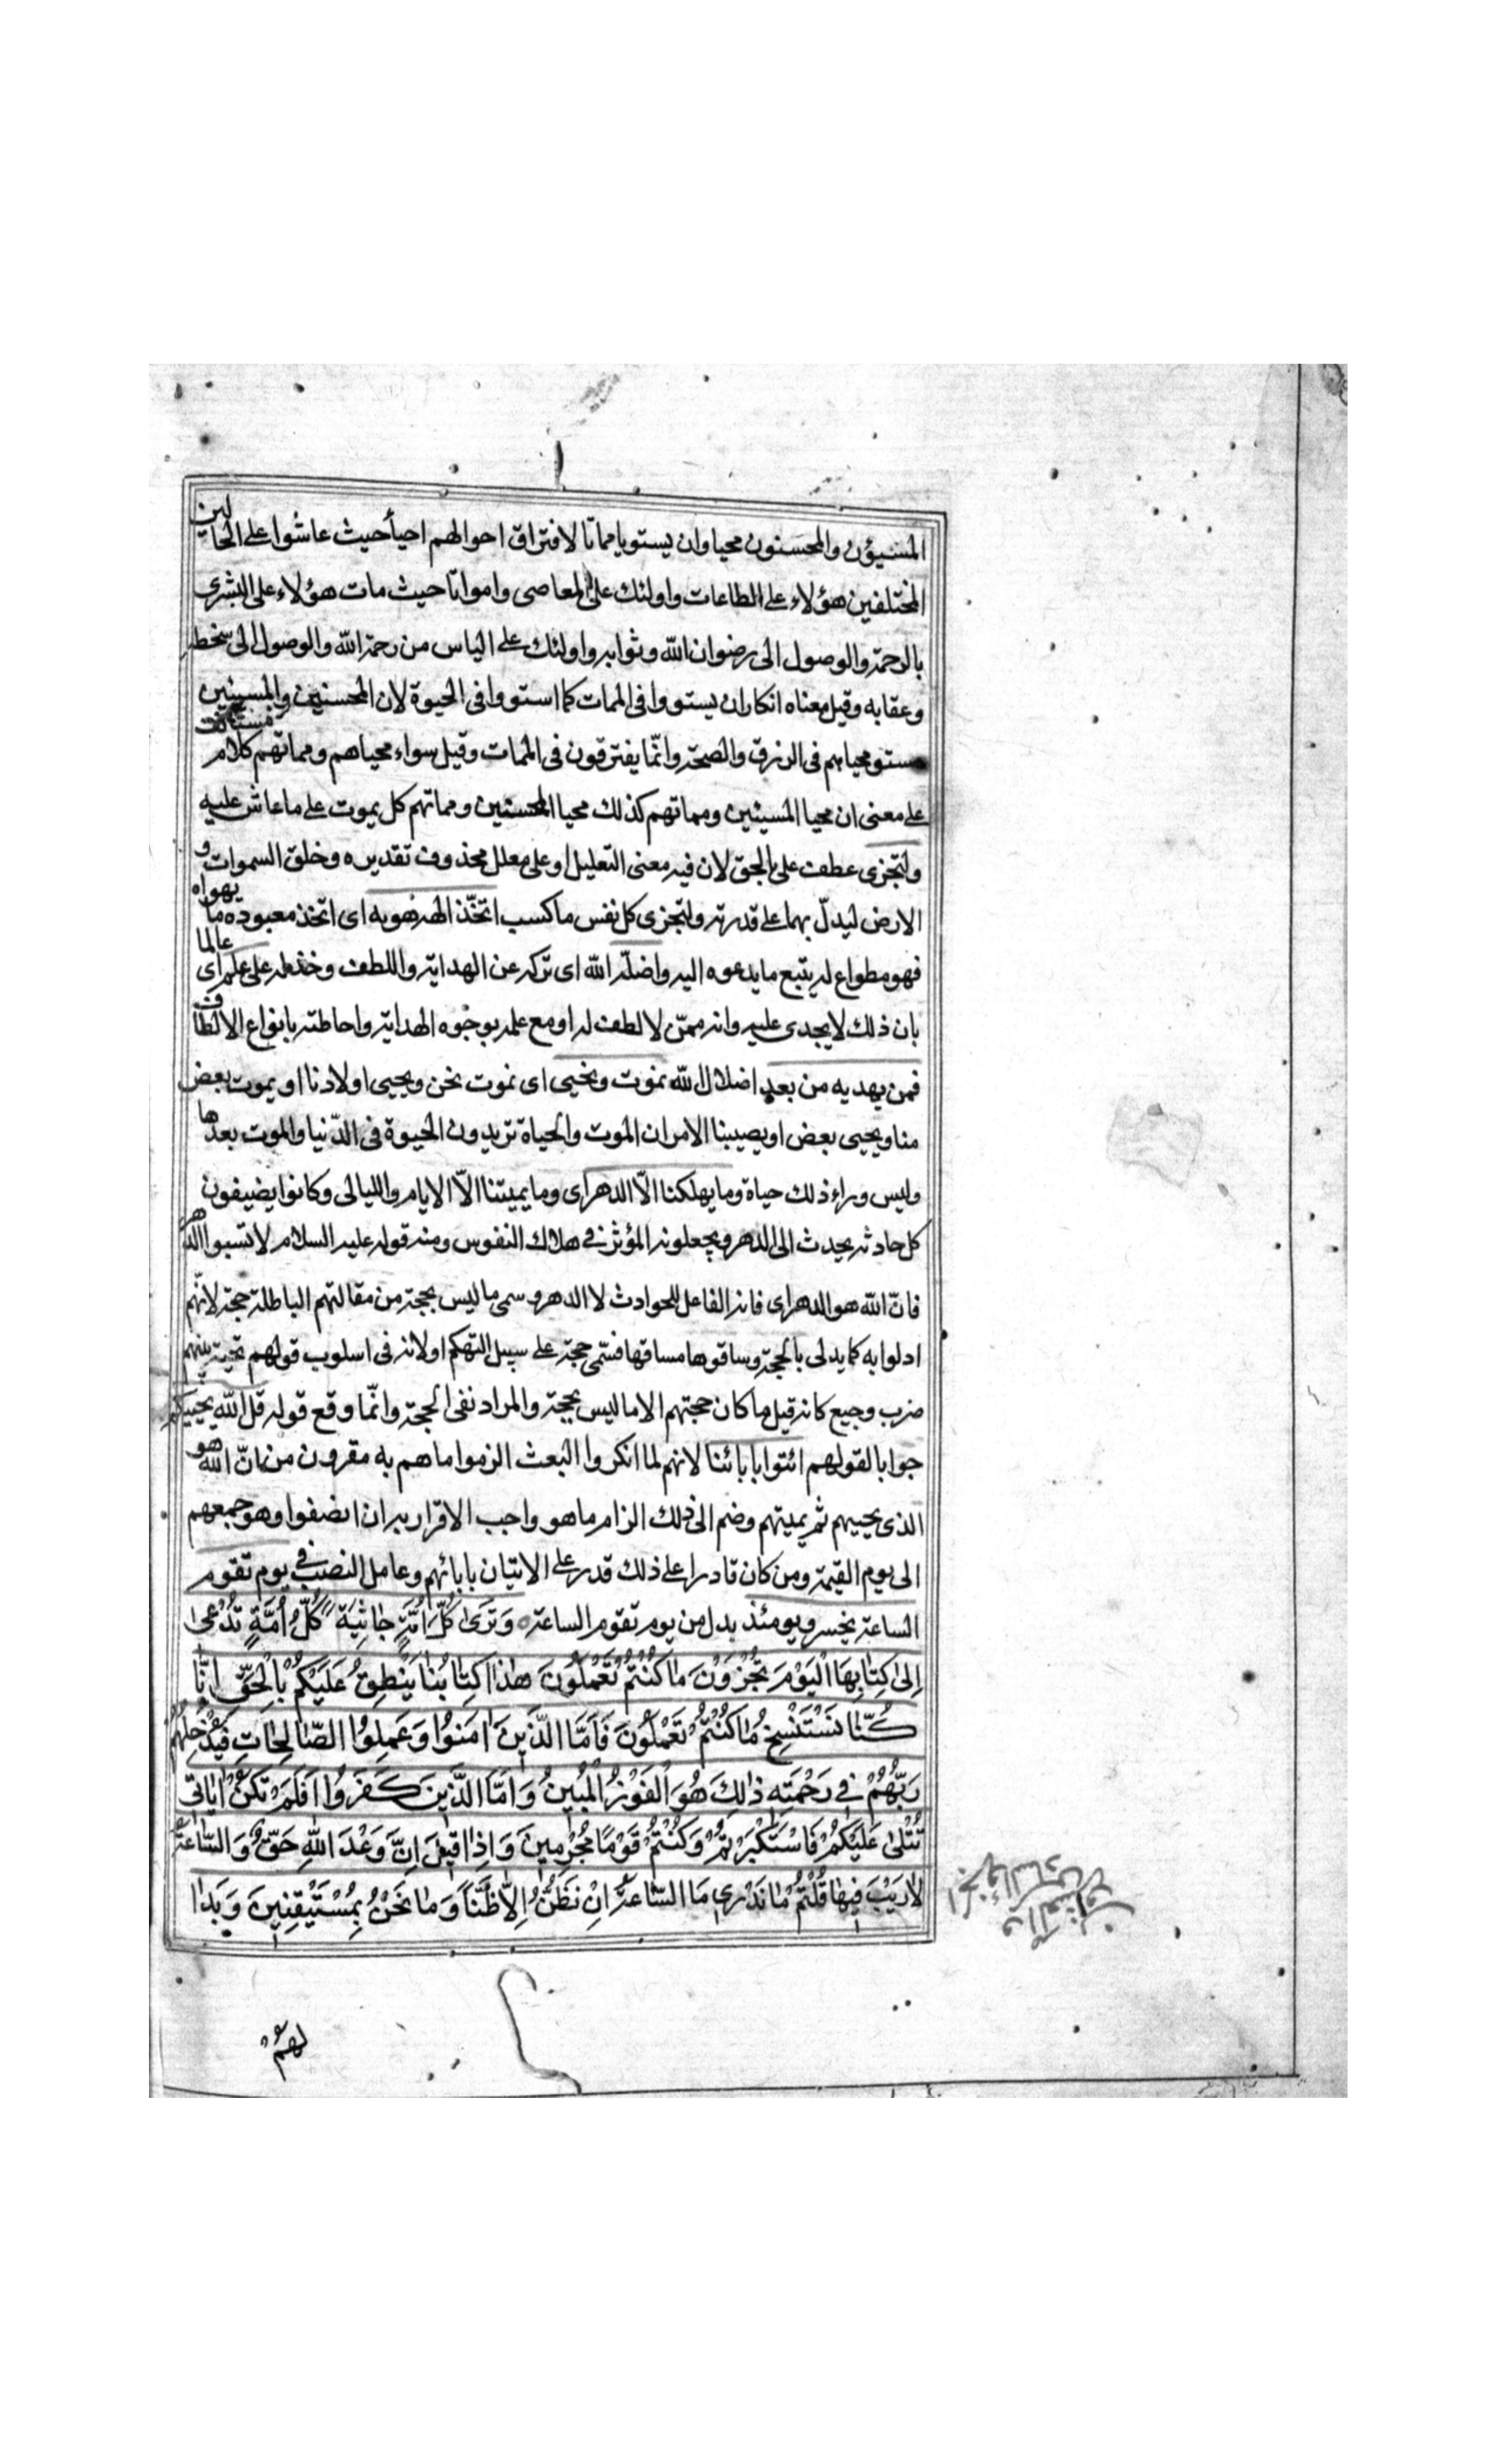 المسيؤن والمحسنون محيا وان يستويا مماتا لافتراق احوالهم احياً حيث عاشوا على الحالين
المختلفين هؤلاء على الطاعات واولئك على المعاصى وامواتا حيث مات هؤلاء على البشرى
بالرحمة والوصول الى رضوان الله وثوابه واولئك على الياس من رحمة الله والوصول الى سخطه
وعقابه وقيل معناه انكار ان يستووا فى الممات كما استووا فى الحيوة لان المحسنين والمسيئين
مستو محياهم فى الرزق والصحة وانّما يفترقون فى الممات وقيل سواء محياهم ومماتهم كلام مستانف
على معنى ان محيا المسيئين ومماتهم كذلك محيا المحسنين ومماتهم كل يموت على ما عاش عليه
ولتجزى عطف على بالحق لان فيه معنى التعليل او على معلل محذوف تقديره وخلق السموات و
الارض ليدلّ بهما على قدرته ولتجزى كل نفس ما كسب اتخّذ الهه هويه اى اتخذ معبوده ما يهواه
فهو مطواع له يتبع ما يدعوه اليه واضلّه الله اى تركه عن الهداية واللطف وخذله على علم اى عالما
بان ذلك لا يجدى عليه وانه ممّن لا لطف له او مع علمه بوجوه الهداية واحاطته بانواع الالطاف
فمن يهديه من بعد اضلال الله نموت ونحيى اى نموت نحن ويحيى اولادنا او يموت بعض
منا ويحيى بعض او يصيبنا الامران الموت والحياة تريدون الحيوة فى الدّنيا والموت بعدها
وليس وراء ذلك حياة وما يهلكنا الاّ الدهر اى وما يميتنا الاّ الايام والليالى وكانوا يضيفون
كل حادثه يحدث الى الدهر ويجعلونه المؤثر فى هلاك النفوس ومنه قوله عليه السلام لا تسبوا الدهر
فانّ الله هو الدهر اى فانه الفاعل للحوادث لا الدهر وسمى ما ليس بحجة من مقالتهم الباطلة حجة لانّهم
ادلوا به كما يدلى بالحجة وساقوها مساقها فسمّى حجة على سبيل التهكم او لانه فى اسلوب قولهم تحية بينهم
ضرب وجيع كانه قيل ما كان حجتهم الا ما ليس بحجة والمراد نفى الحجة وانّما وقع قوله قل الله يحييكم
جوابا لقولهم ائتوا باٰبائنا لانهم لما انكروا البعث الزموا ما هم به مقرون من انّ الله هو
الذى يحييهم ثم يميتهم وضم الى ذلك الزام ما هو واجب الاقرار به ان انصفوا وهو جمعهم
الى يوم القيمة ومن كان قادرا على ذلك قدر على الاتيان باٰبائهم وعامل النصب فى يوم تقوم
الساعة يخسر ويومئذ بدل من يوم تقوم الساعة ٥ وَتَرَىٰ كُلَّ اُمَّةٍ جَاثِيَةً كُلُّ اُمَّةٍ تُدْعىٰ
اِلىٰ كِتٰابِهَا الْيَوْمَ تُجْزَوْنَ مٰا كُنْتُمْ تَعْمَلُونَ هٰذا كِتٰابُنٰا يَنْطِقُ عَلَيْكُمْ بِالْحَقِّ اِنّٰا
كُنّٰا نَسْتَنْسِخُ مٰا كُنْتُمْ تَعْمَلُونَ فَاَمَّا الَّذِينَ اٰمَنُوا وَعَمِلُوا الصّٰالِحٰاتِ فَيُدْخِلُهُمْ
رَبُّهُمْ فِى رَحْمَتِهِ ذٰلِكَ هُوَ الْفَوْزُ الْمُبِينُ وَاَمَّا الَّذِينَ كَفَرُوا اَفَلَمْ تَكُنْ اٰيٰاتِى
تُتْلىٰ عَلَيْكُمْ فَاسْتَكْبَرْتُمْ وَكُنْتُمْ قَوْمًا مُجْرِمِينَ وَاِذٰا قِيلَ اِنَّ وَعْدَ اللّٰهِ حَقٌّ وَالسّٰاعَةُ
لٰا رَيْبَ فِيهٰا قُلْتُمْ مٰا نَدْرِى مَا السّٰاعَةُ اِنْ نَظُنُّ اِلّٰا ظَنًّا وَمٰا نَحْنُ بِمُسْتَيْقِنِينَ وَبَدٰا
لَهُمْ